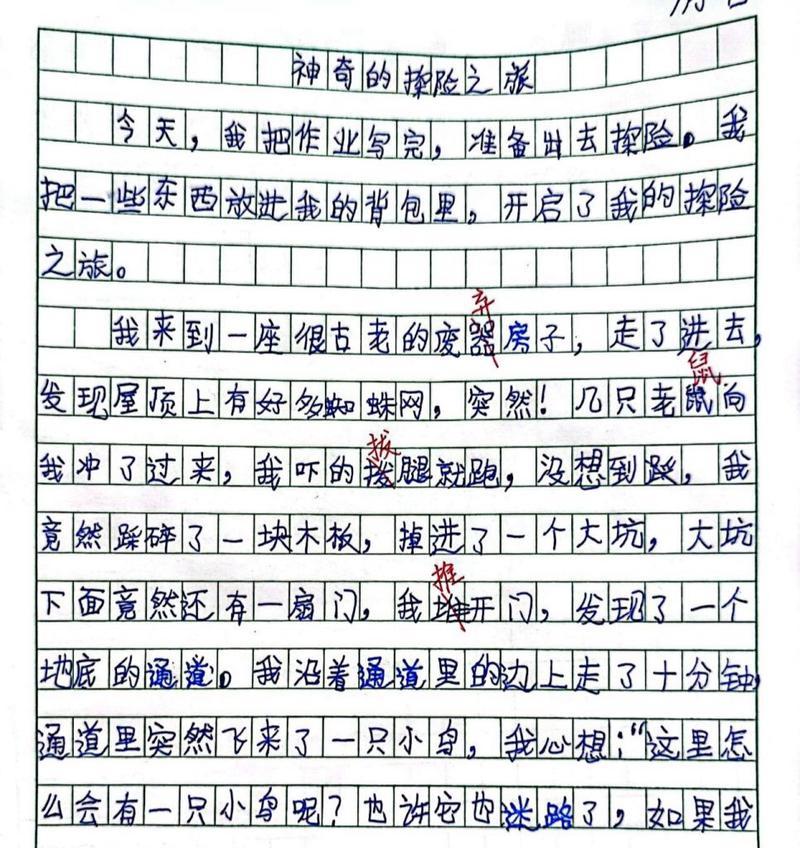 神奇的探险之旅
今天，我把作业写完，准备出去探险。我
把一些东西放进我的背包里，开启了我的探险
之旅。
弃
我来到一座很古老的废器房子，走了进去，
鼠
发现屋顶上有好多蜘蛛网，突然！几只老鼠向
拔
我冲了过来，我吓的拨腿就跑，没想到踩，我
竟然踩碎了一块木板，掉进了一个大坑，大坑
推
下面竟然还有一扇门，我堆开门，发现了一个
地底的通道。我沿着通道里的边上走了十分钟，
通道里突然飞来了一只小鸟，我心想：“这里怎
么会有一只小鸟呢？也许它也迷路了，如果我